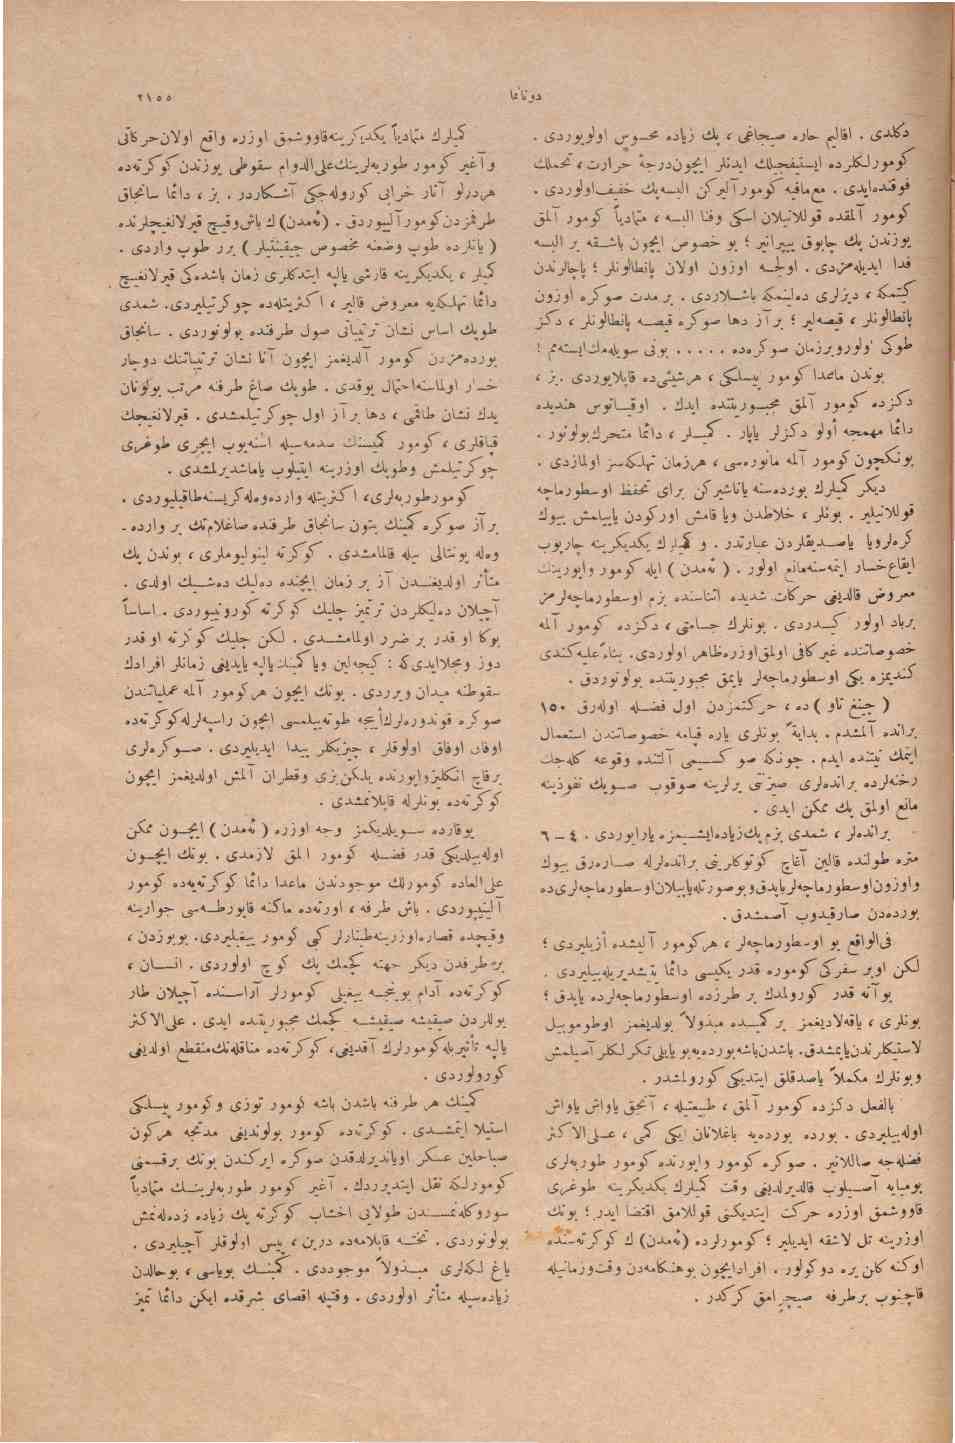 دوناما
٢١٥٥
دكلدی . اقالیم حاره صیجاغی ، پك زیاده محسوس اولویوردی .
كومورلكلرده ایستیفجیلك ایدنلر ایچون درجهٔ حرارت ، تحملك
فوقنده ایدی . مع مافیه كومور آلیركن البسه پك خفیف اولوردی .
كومور آلمقده قوللانیلان اسكی وفنا البسه ، متمادیاً كومور آلمق
یوزندن پك چابوق ییپرانیر ؛ بو خصوص ایچون باشقه بر البسه
فدا ایدیله مزدی . اولجه اوزون اولان پانطالونلر ؛ پاچالرندن
كیتمكه ، دیزلری ده لینمكه باشلاردی . بر مدت صوكره اوزون
پانطالونلر ، قیصه لیر ؛ بر آز دها صوكره قیصه پانطالونلر ، دكز
طوكی اولور وبر زمان صوكره ده ..... بونی سویله مك ایسته مم !
بوندن ماعدا كومور پیسلكی ، هر شیئی ده قاپلایوردی . بز ،
دكزده كومور آلمق مجبوریتنده ایدك . اوقیانوس هندیده
دائما مهمجه أولو دكزلر یاپار . كمیلر ، دائما متحرك بولونور .
بونكچون كومور آلمه مانوره سی ، هر زمان تهلكه سز اولمازدی .
دیكر كمیلرك بورده سنه یاناشیركن برای تحفظ اوسطورماچه
قوللانیلیر . بونلر ، خلاطدن ویا قامش اوركودن یاپیلمش بیوك
كره لر ویا یاصدیقلردن عبارتدر . و كمیلرك یكدیكرینه چارپوب
ایقاع خسار ایتمه سنه مانع اولور . ( ئه مدن ) ایله كومور واپورینك
معروض قالدیغی حركات شدیده اثناسنده بزم اوسطورماچه لرمز
برباد اولور كیدردی . بونلرك جسامتی ، دكزده كومور آلمه
خصوصاتنده غیر كافی اولمق اوزره ظاهر اولوردی . بناءً علیه كندی
كندیمزه یكی اوسطورماچه لر یاپمق مجبوریتنده بولونوردق .
( چینغ تاو ) ده ، حركتمزدن اول فضله اوله رق ١٥٠
برانده آلمشدم . بدایةً بونلری یاره قپامه خصوصاتندن استعمال
ایتمك نیتنده ایدم . چونكه صو كسیمی آلتنده وقوعه كله جك
رخنه لرده برانده لری صیزنتی یرلرینه صوقوب صویك نفوذینه
مانع اولمق پك ممكن ایدی .
برانده لر ، شمدی بزم پك زیاده ایشیمزه یارایوردی . ٤ – ٦
متره طولنده قالین آغاج كوتوكلرینی برانده لرله صاره رق بیوك
واوزون اوسطورماچه لر یاپدق و بو صورتله یاپیلان اوسطورماچه لری ده
بورده دن صارقیدوب آصمشدق .
فی الواقع بو اوسطورماچه لر ، هر كومور آلیشده أزیلیردی ؛
لكن اوبر سفركی كوموره قدر یكیسی دائما یتشدیریله بیلیردی .
بو آنه قدر كورولمدك بر طرزده اوسطورماچه لرده یاپدق ؛
بونلری ، یاقه لادیغمز بر كمیده مبذولاً بولدیغمز اوطوموبیل
لاستیكلرندن یاپمشدق . باشدن باشه بورده یه بویله تكرلكلر آصیلمش
وبونلرك مكملاً یاصدقلق ایتدیكی كورولمشدر .
بالفعل دكزده كومور آلمق ، طبیعتیله ، آنجق یاواش یاواش
اوله بیلیردی . بورده بورده یه باغلانان ایكی كمی ، علی الاكثر
فضله جه صاللانیر . صوكره كومور واپورنده كومور طوربه لری
بومبایه آصیلوب قالدیرلدیغی وقت كمیلرك یكدیكرینه طوغری
قاووشمق اوزره حركت ایتدیكنی قوللامق اقتضا ایدر ؛ بونك
اوزرینه تل لاشقه ایدیلیر ؛ كومورلرده (ئه مدن) ك كوكرته سنده
اوكنه كلن یره دوكولور . افراد ایچون بو هنكامه دن وقت و زمانیله
قاچنوب بر طرفه صیچرامق كركدر .
كمیلرك متمادیاً یكدیكرینه قاووشمق اوزره واقع اولان حركاتی
وآغیر كومور طوربه لرینك علی الدوام سقوطی یوزندن كوكرته ده
هر درلو آثار خرابی كوروله جكی آشكاردر . بز ، دائما سانجاق
طرفمزدن كومور آلییوردق . (ئه مدن) ك باش وقیچ قیرلانغیچلرنده
( یانلرده طوپ وضعنه مخصوص چیقینتیلر ) برر طوپ واردی .
كمیلر ، یكدیكرینه قارشی یالپه ایتدكلری زمان باشده كی قیرلانغیچ
دائما تهلكه یه معروض قالیر ، اكثریتله ده چوكرتیلیردی . شمدی
طوپك اساس نشان ترتیباتی صول طرفنده بولونوردی . سانجاق
بورده مزدن كومور آلدیغمز ایچون آنا نشان ترتیباتنك دوچار
خسار اولماسنه احتمال یوقدی . طوپك صاغ طرفنه مرتب بولونان
یدك نشان طاقمی ، دها بر آز اول چوكرتیلمشدی . قیرلانغیجك
قپاقلری ، كومور كمیسنك صدمه سیله اشنه یوب ایچری طوغری
چوكرتیلمش وطوپك اوزرینه ایتیلوب یاماشدیرلمشدی .
كومور طوربه لری ، اكثریتله وارده وه له كریسنه طاقیلیوردی .
بر آز صوكره كمینك بتون سانجاق طرفنده صاغلام تك بر وارده ـ
وه له پونتالی بیله قالمامشدی . كوكرته لینولیوملری ، بوندن پك
متأثر اولدیغندن آز بر زمان ایچنده ده لیك ده شیك اولدی .
آچیلان ده لیكلردن تر تمیز چلیك كوكرته كورونییوردی . اساساً
بوكا او قدر بر ضرر اولمامشدی . لكن چلیك كوكرته او قدر
دوز ومجلا ایدی كه : كیجه لین ویا كمینك یالپه یاپدیغی زمانلر افرادك
سقوطنه میدان ویرردی . بونك ایچون هر كومور آلمه عملیاتندن
صوكره قوندوره لرك أییجه طوته بیلمسی ایچون راسپه لرله كوكرته ده
اوفاق اوفاق اولوقلر ، چیزیكلر پیدا ایدیلیردی . صوكره لری
برقاچ انكلیز واپورنده یلكن بزی وقطران آلمش اولدیغمز ایچون
كوكرته ده بونلرله قاپلانمشدی .
یوقارده سویلدیكمز وجه اوزره ( ئه مدن ) ایچون ممكن
اوله بیلدیكی قدر فضله كومور المق لازمدی . بونك ایچون
علی العاده كومورلك موجودندن ماعدا دائما كوكرته یه ده كومور
آلینییوردی . باش طرفه ، اورته ده ماكنه قاپورطه سی جوارینه
وقیچده قصاره اوزرینه طینازلر كبی كومور ییغیلیردی . بو یوزدن ،
بر طرفدن دیكر جهته كچمك پك كوج اولوردی . انسان ،
كوكرته ده آدام بوینجه ییغیلی كومورلر آراسنده آچیلان طار
یوللردن صیقیشه صیقیشه كچمك مجبوریتنده ایدی . علی الاكثر
یالپه تأثیریله كومورلرك آقدیغی ، كوكرته ده مناقله نك منقطع اولدیغی
كورولوردی .
كمینك هر طرفنه باشدن باشه كومور توزی وكومور پیسلكی
استیلا ایتمشدی . كوكرته ده كومور بولوندیغی مدتجه هر كون
صباحلین عسكر اویاندیرلدقدن صوكره ایركندن بونك بر قسمنی
كومورلكه نقل ایتدیرردك . آغیر كومور طوربه لرینك متمادیاً
سوروكله نمسندن طولایی اخشاب كوكرته پك زیاده زده لنمش
بولونوردی . تخته قاپلامه ده درین ، پیس اولوقلر آچیلیردی .
یاغ لكه لری مبذولاً موجوددی . كمینك بویاسی ، بو حالدن
زیاده سیله متأثر اولوردی . وقتیله اقصای شرقده ایكن دائما تمیز